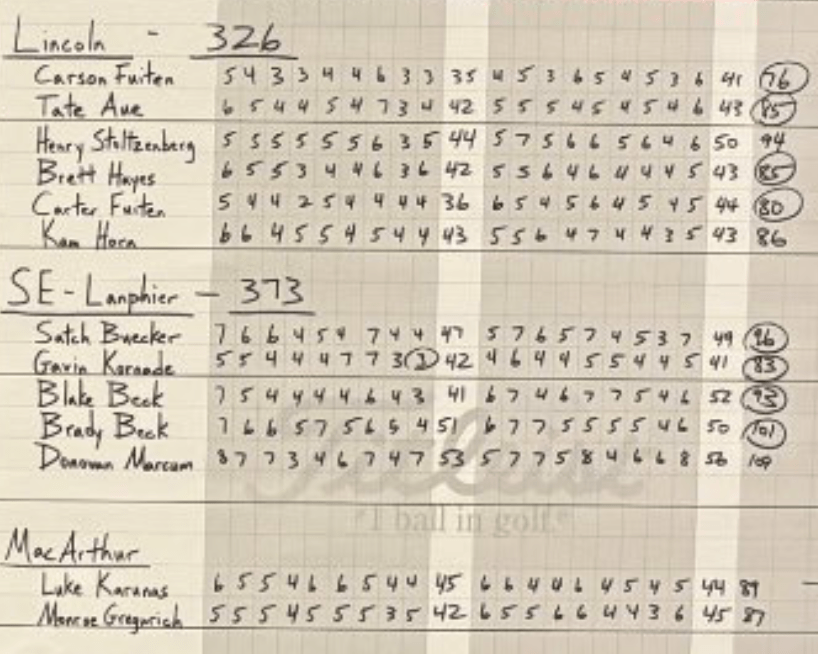 Lincoln - 326
Carson Fuiten 5 4 3 3 4 4 6 3 3 35 4 5 3 6 5 4 5 3 6 41 76
Tate Aue 6 5 4 4 5 4 7 3 4 42 5 5 5 4 5 4 5 4 6 43 85
Henry Stoltzenberg 5 5 5 5 5 5 6 3 5 44 5 7 5 6 6 5 6 4 6 50 94
Brett Hayes 6 5 5 3 4 4 6 3 6 42 5 5 6 4 6 4 4 4 5 43 85
Carter Fuiten 5 4 4 2 5 4 4 4 4 36 6 5 4 5 6 4 5 4 5 44 80
Kam Horn 6 6 4 5 5 4 5 4 4 43 5 5 6 4 7 4 4 3 5 43 86
SE - Lanphier - 373
Satch Buecker 7 6 6 4 5 4 7 4 4 47 5 7 6 5 7 4 5 3 7 49 96
Gavin 5 5 4 4 4 7 7 3 3 42 4 6 4 4 5 5 4 4 5 41 83
Blake Beck 7 5 4 4 4 4 6 4 3 41 6 7 4 6 7 7 5 4 6 52 93
Brady Beck 7 6 6 5 7 5 6 5 4 51 6 7 7 5 5 5 5 4 6 50 101
Donovan Marcum 8 7 7 3 4 6 7 4 7 53 5 7 7 5 8 4 6 6 8 56 109
Titleist
#1 ball in golf.
MacArthur
Luke Karunas 6 5 5 4 6 6 5 4 4 45 6 6 4 4 6 4 5 4 5 44 89
Monroe 5 5 5 4 5 5 5 3 5 42 6 5 5 6 6 4 4 3 6 45 87